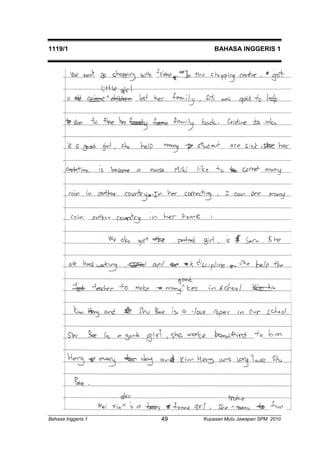 1119/1 BAHASA INGGERIS 1
We went go shopping with friend. In the shopping centre, got
little girl
is lost her family, Siti was got to help
to find family back. Cristine is also
is a good girl, she help many student are sick she her
ambition is become a nurse. Miki like to correct many
coin in another country. In her correcting, I can see many
coin another country in her home.
We also got prefect girl, is Sara. She
hard working, and discipline. She help the
good
teacher to make many kes in school.
Kim Heng and Shu Bee is a love caper in our school.
Shu Bee is a good girl, she make breakfirst to him
Heng every day and Kim Heng was very love Shu
Bee.
also make
Mei Xin is a friend girl, she to fun
Bahasa Inggeris 1 49 Kupasan Mutu Jawapan SPM 2010